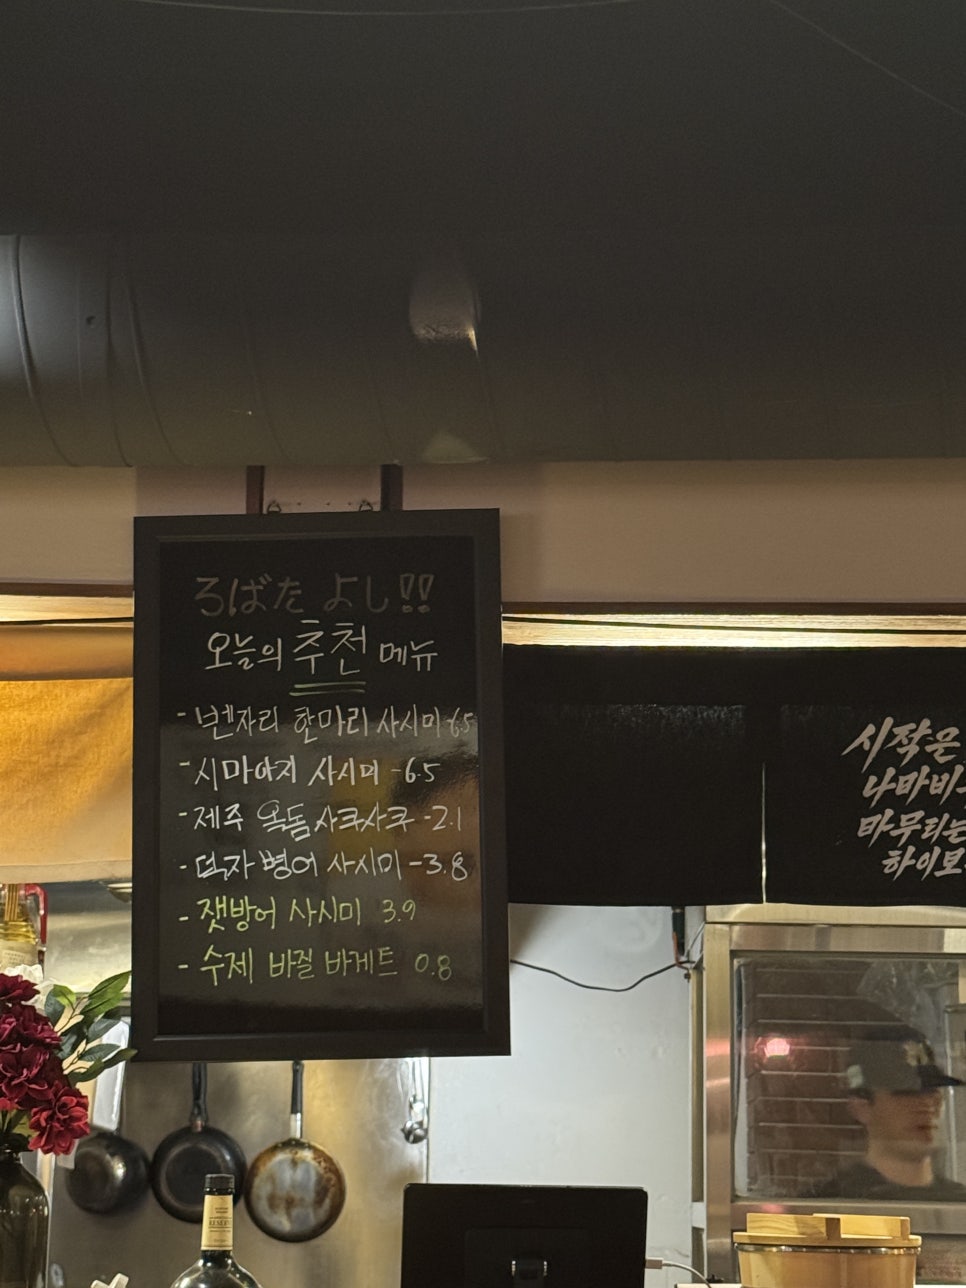 ろばた よし!!
오늘의 추천 메뉴
- 벤자리 한마리 사시미 -6.5
- 시마아지 사시미 -6.5
- 제주 옥돔 사쿠사쿠 -2.1
- 덕자 병어 사시미 -3.8
- 잿방어 사시미 3.9
- 수제 바질 바게트 0.8
시작은
나마비
마무리는
하이보
RESERVE